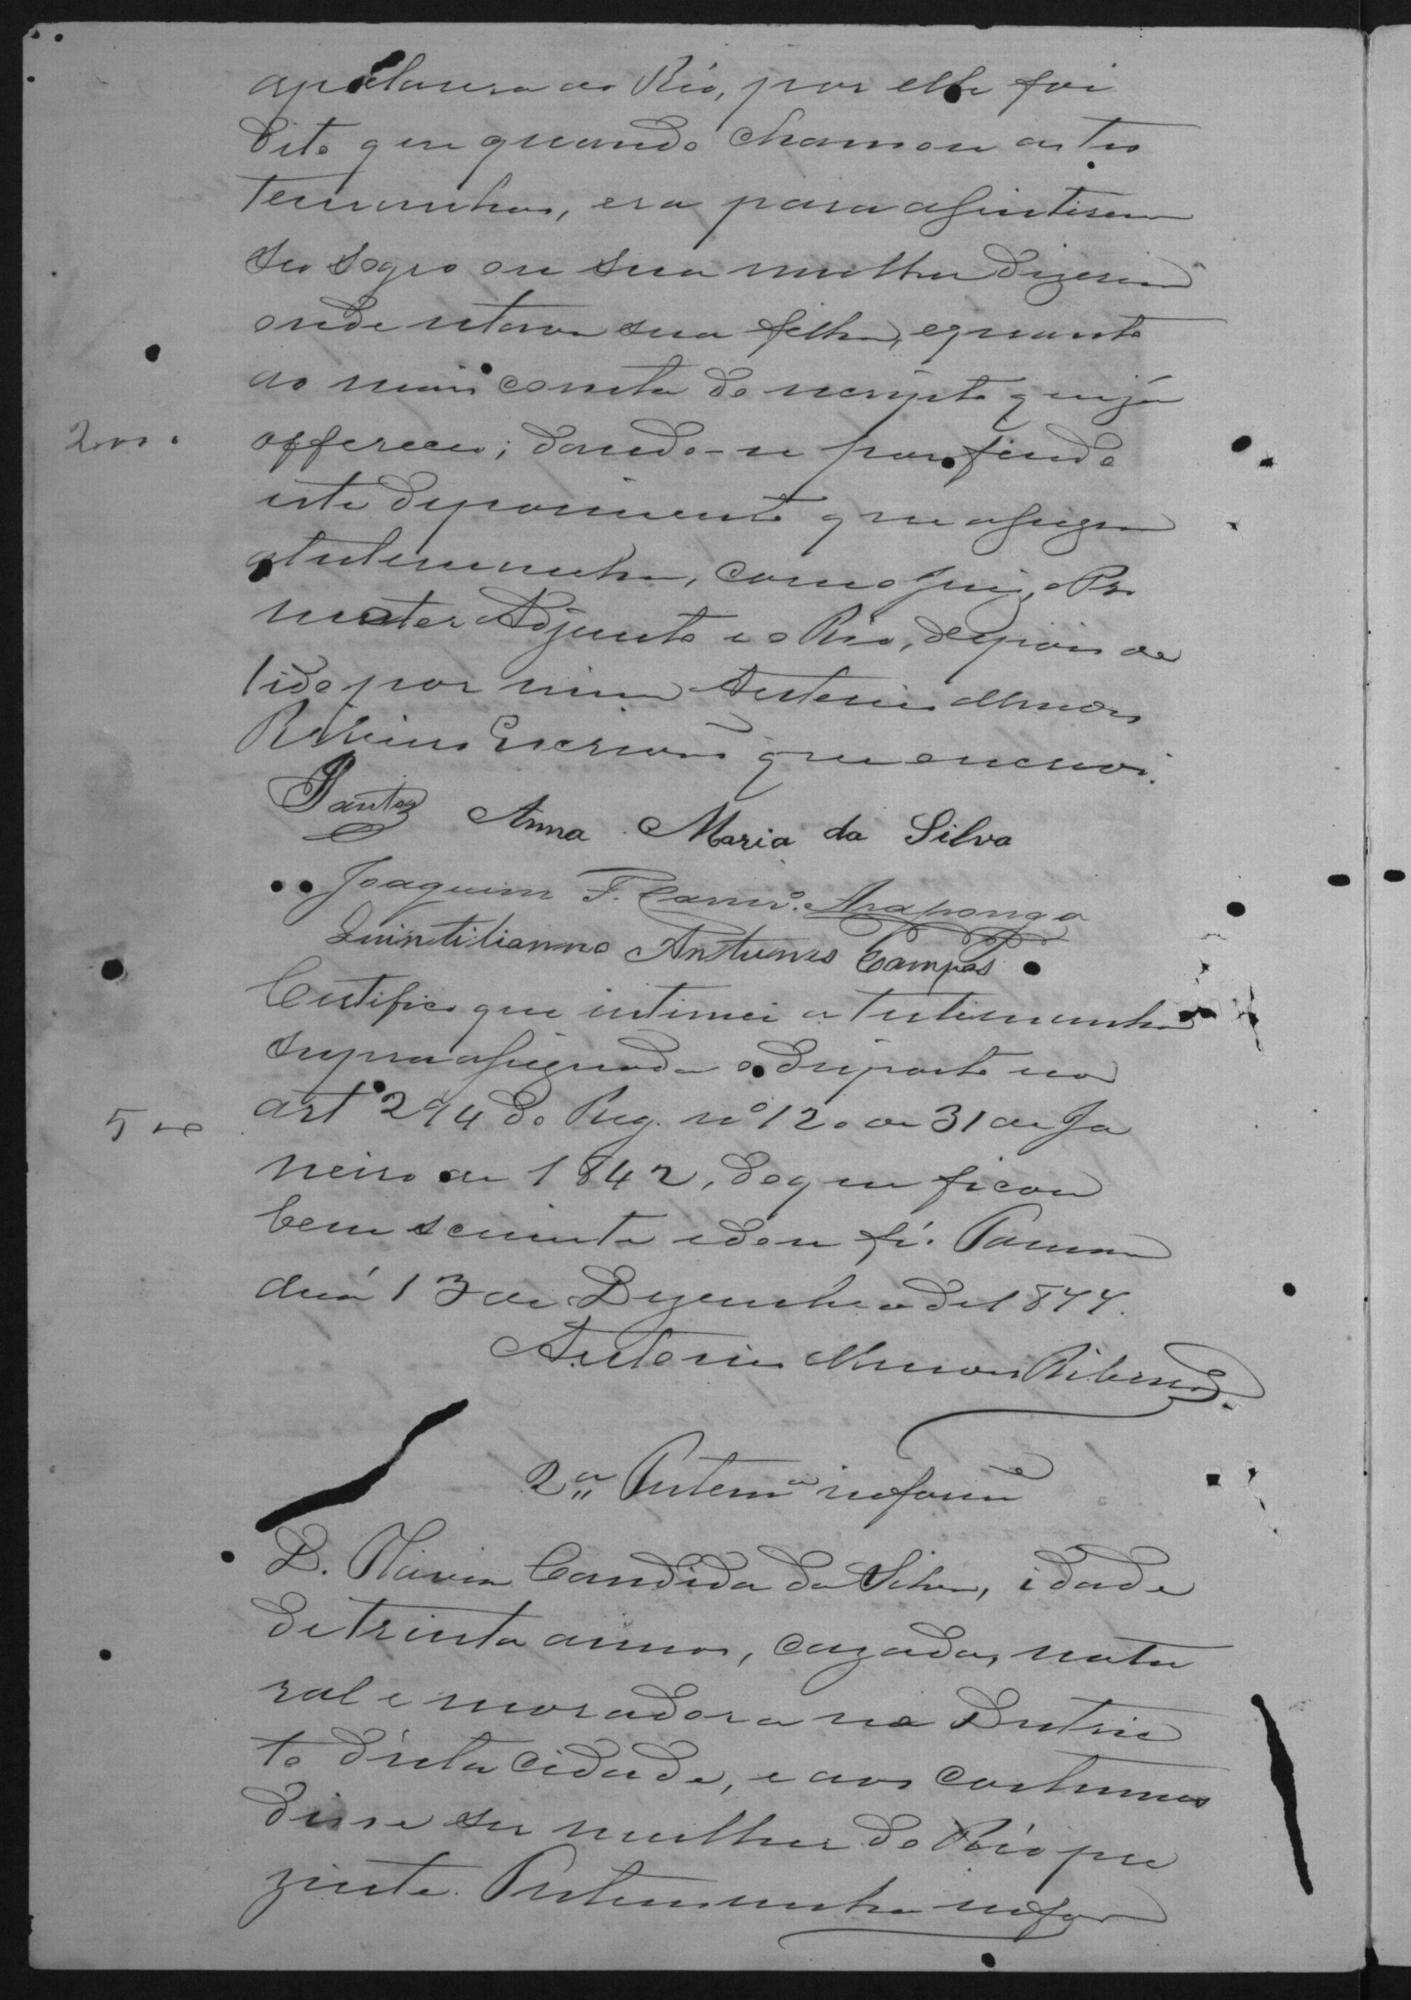 a palavra ao Réo, por elle foi
dito que quando chamou as tes
temunhas, era para assistirem
seu sogro ou sua mulher dizerem
onde estava sua filha, e quanto
ao mais consta do escripto que já
offereceu; dando-se por findo
este depoimento que assigna
a testemunha, com o Juiz, o Pro
motor Adjunto e o Réo, depois de
lido por mim Antonio
Ribeiro Escrivão que escrevi.
Santos Anna Maria da Silva
Joaquim F. Carnrº. Araponga
Quintilianno Antunes Campos
Certifico que intimei a testemunha
supra assignada o disposto no
200
artº 294 do Reg. nº 120 de 31 de Ja
500
neiro de 1842, do que ficou
bem sciente e dou fé. Parana
guá 13 de Dezembro de 1877.
Antonio Ribeiro.
2ª Testemª inform
D. Maria Candida da Silva, idade
de trinta annos, cazada, natu
ral e moradora no Distric
to d'esta cidade, e aos costumes
disse ser mulher do Réo pre
zente. Testemunha infor